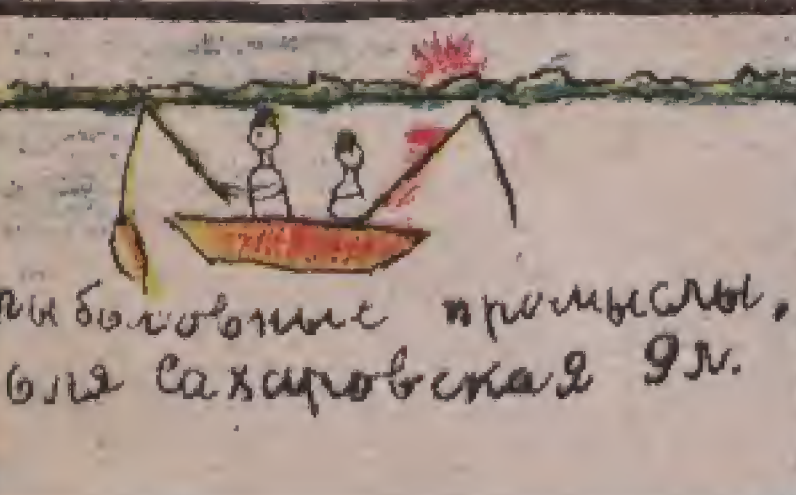 рыболовные промыслы.
Оля Сахаровская 9 л.